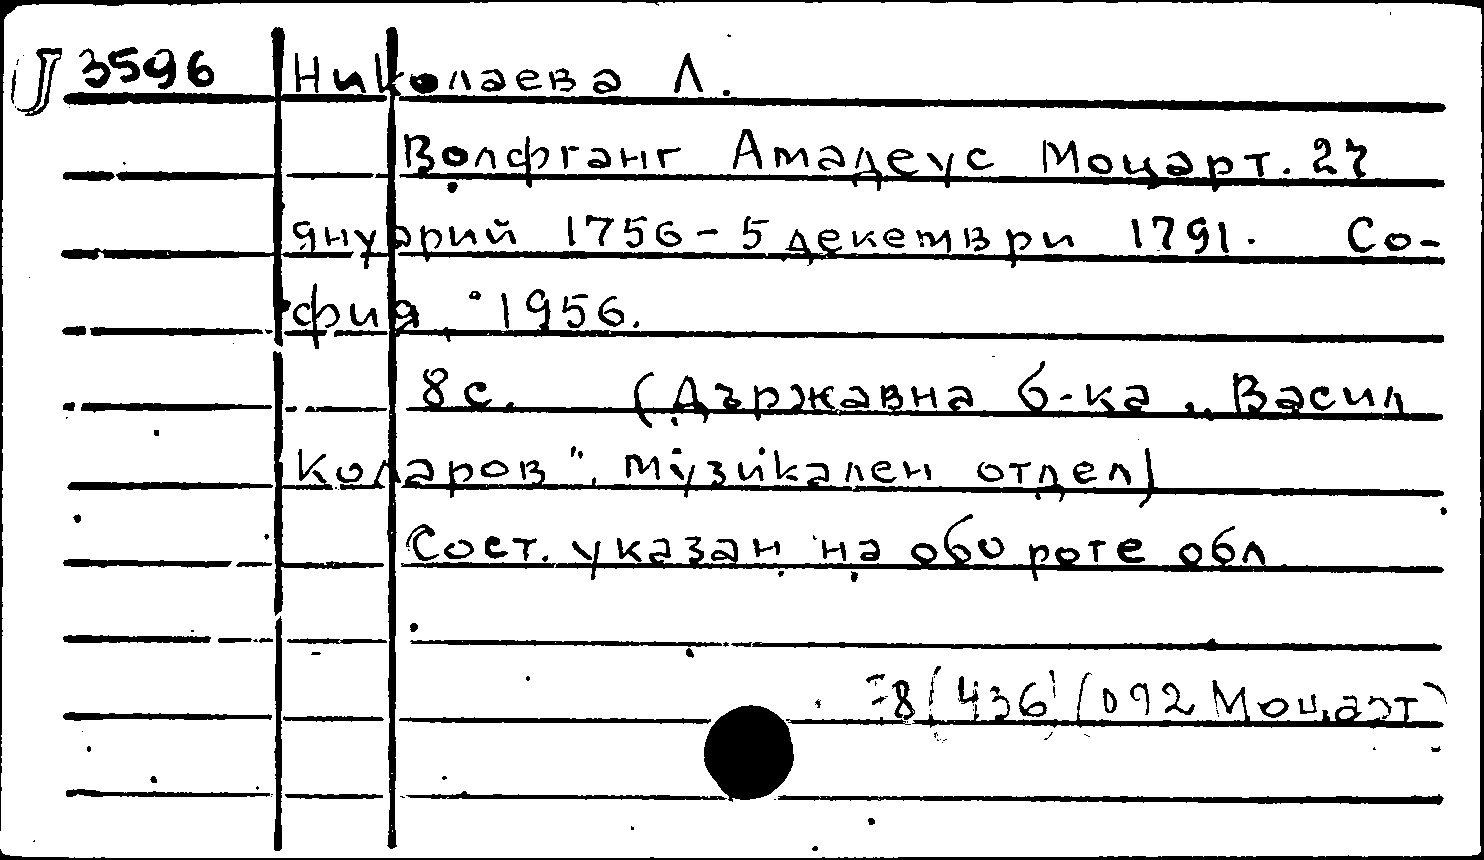 J 3596 Николаева Л.
Волфганг Амадеус Моцарт. 27
януарий 1756 - 5 декември 1791. Со-
фия, 1956.
8 с. (Държавна б-ка „Васил
Коларов", музикален отдел)
Сост. указан на обороте обл.
78(436)(092 Моцарт)